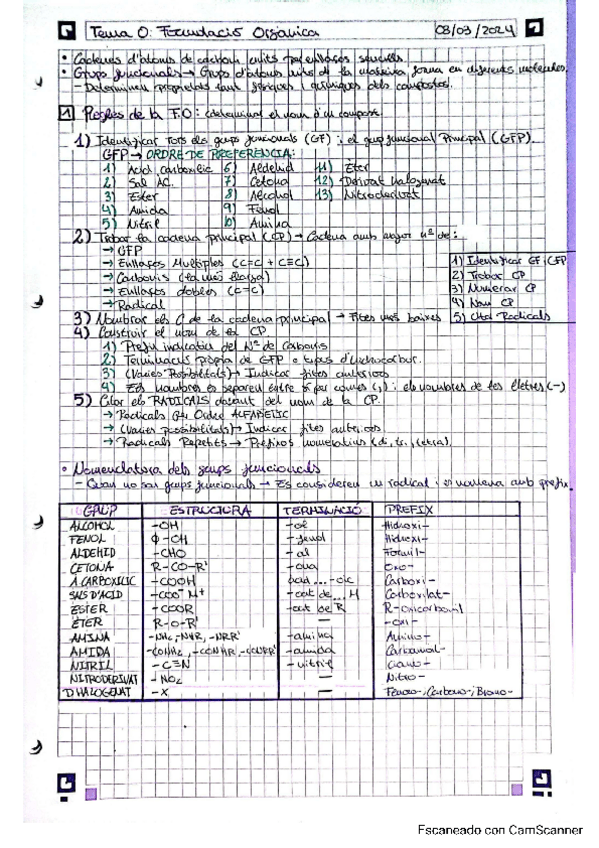 Tema 0: Formulació Orgànica 08/03/2024
• Cadenes d'àtoms de carboni units per enllaços senzills.
• Grups funcionals → Grups d'àtoms units de la mateixa forma en diferents molècules.
- Determinen propietats tant físiques i químiques dels compostos.
1 Regles de la F.O: determinem el nom d'un compost.
1) Identificar tots els grups funcionals (GF) i el grup funcional Principal (GFP).
GFP → ORDRE DE PREFERÈNCIA:
1) Àcid carboxílic 6) Aldehid 11) Èter
2) Sal ÀC. 7) Cetona 12) Derivat halogenat
3) Ester 8) Alcohol 13) Nitroderivat
4) Amida 9) Fenol
5) Nitril 10) Amina
2) Trobar la cadena principal (CP) → Cadena amb major nº de:
→ GFP
→ Enllaços Múltiples (C=C + C≡C)
→ Carbonis (la més llarga)
→ Enllaços dobles (C=C)
→ Radical
1) Identificar GF i GFP
2) Trobar CP
3) Numerar CP
4) Nom CP
5) Citar Radicals
3) Nombrar els C de la cadena principal → Fites més baixes
4) Construir el nom de la CP
1) Prefix indicatiu del Nº de Carbonis
2) Terminació pròpia de GFP o tipus d'hidrocarbur.
3) (Varies Posibilitats) → Indicar fites anteriors
4) Els nombres es separen entre si per comes (,) i els nombres de les lletres (-)
5) Citar els RADICALS davant del nom de la CP.
→ Radicals per Ordre ALFABÈTIC
→ (Varies possibilitats) → Indicar fites anteriors.
→ Radicals Repetits → Prefixos numeratius (di, tri, tetra).
• Nomenclatura dels grups funcionals
- Quan no son grups funcionals → Es consideren un radical i es nomena amb prefix
GRUP ESTRUCTURA TERMINACIÓ PREFIX
ALCOHOL -OH -ol Hidroxi-
FENOL Φ-OH -fenol Hidroxi-
ALDEHID -CHO -al Formil-
CETONA R-CO-R' -ona Oxo-
A.CARBOXILIC -COOH àcid ...-oic Carboxi-
SALS D'ACID -COO⁻ M⁺ -oat de ... M Carboxilat-
ÈSTER -COOR -oat de R R-oxicarbonil
ÈTER R-O-R' — -oxi-
AMINA -NH₂, -NHR, -NRR' -amina Amino-
AMIDA -CONH₂, -CONHR, -CONRR' -amida Carbamol-
NITRIL -C≡N -nitril Ciano-
NITRODERIVAT -NO₂ — Nitro-
D.HALOGENAT -X —
Escaneado con CamScanner